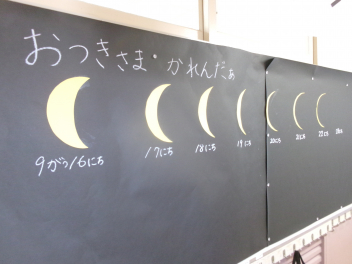 おつきさま・かれんだぁ
9がつ16にち
17にち
18にち
19にち
20にち
21にち
22にち